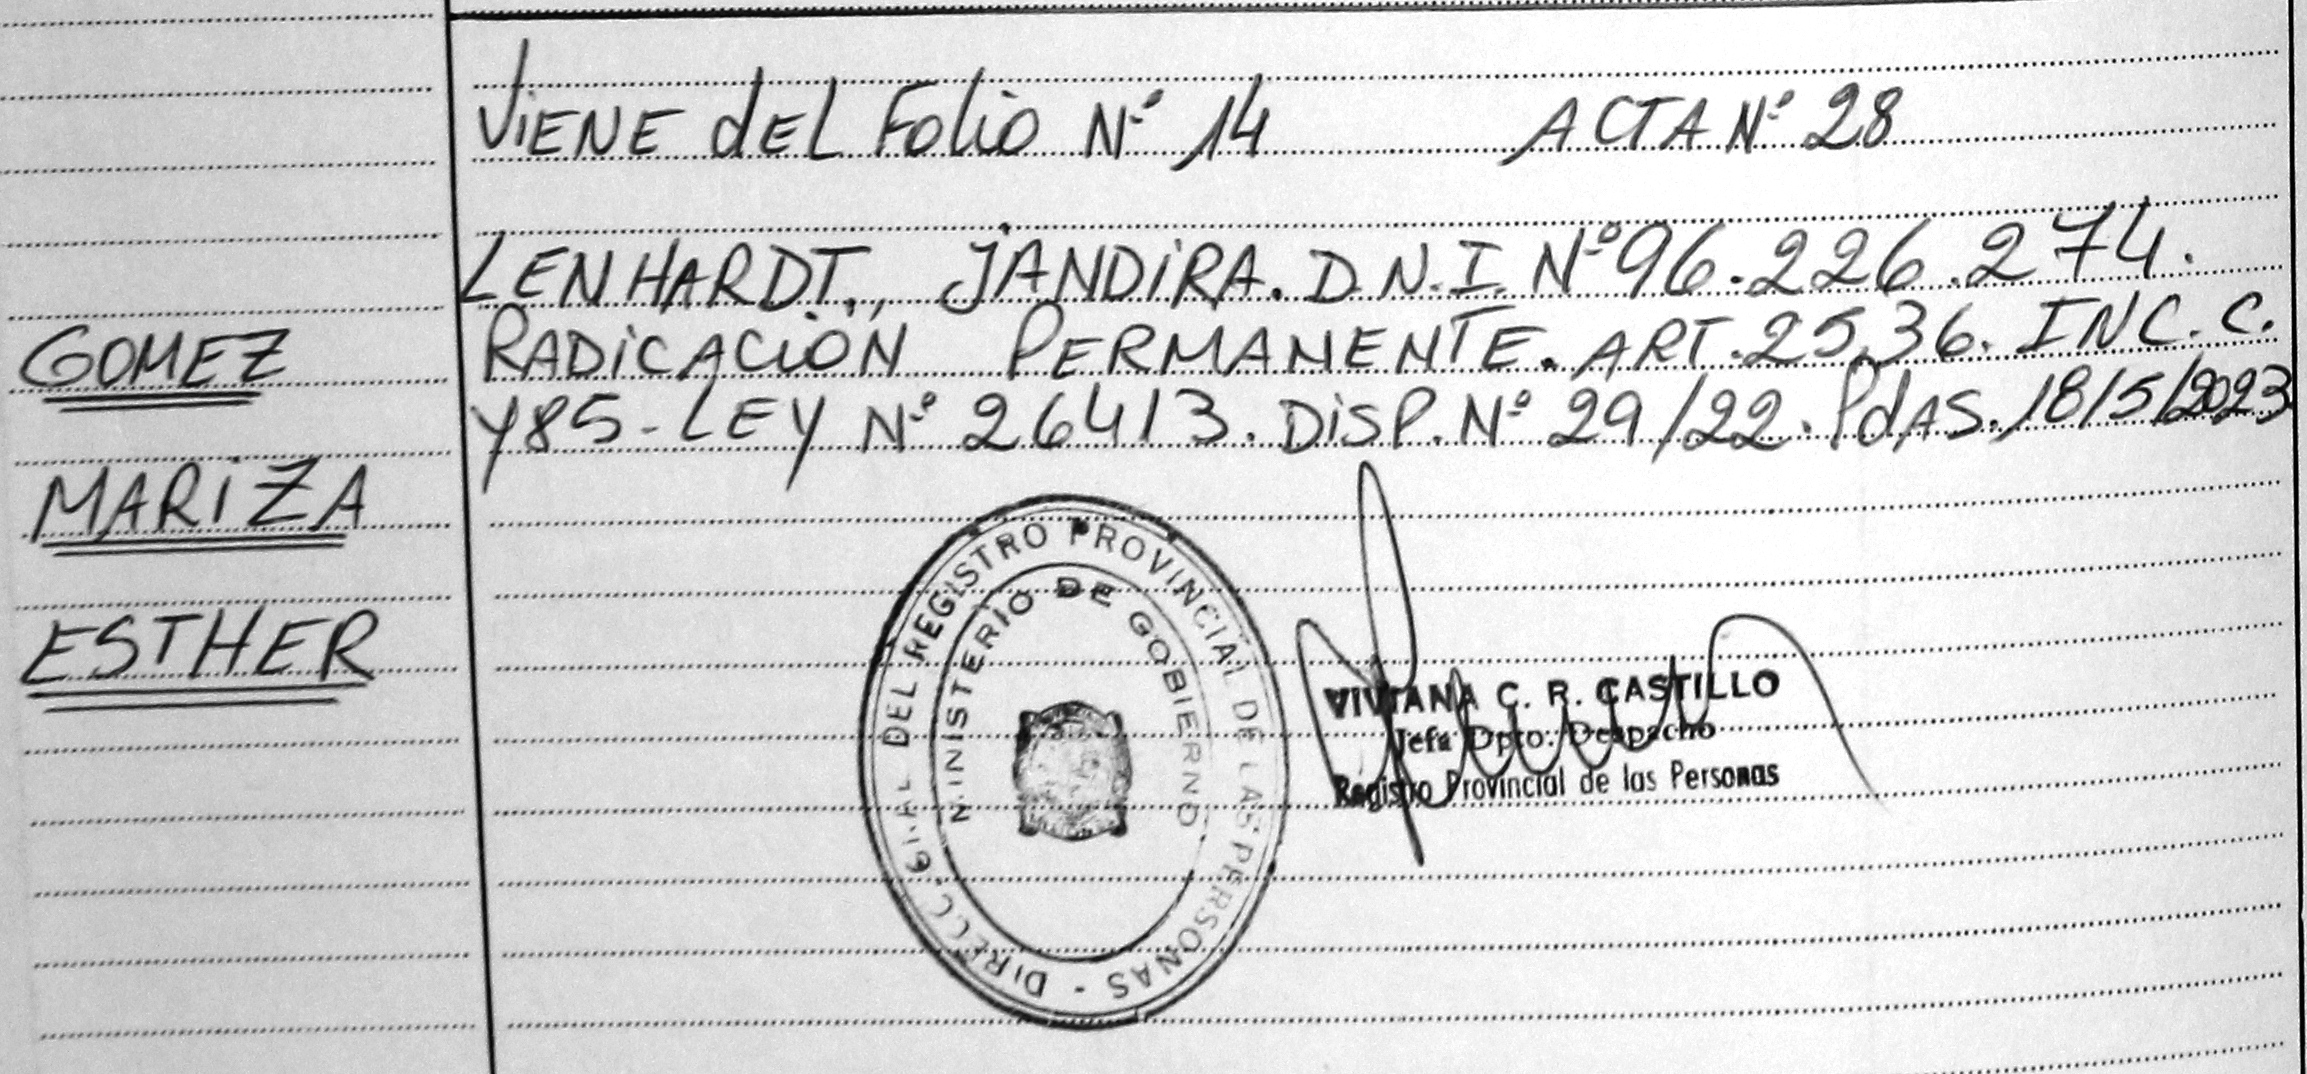 VIENE dEL FOLIO Nº 14 ACTA Nº 28
LENHARDT., JANDIRA. D.N.I. Nº 96.226.274.
RADICACIÓN PERMANENTE. ART. 25,36. INC. C.
Y85- LEY Nº 26413. DISP. Nº 29/22. PdAS. 18/5/2023
GOMEZ
MARIZA
ESTHER
DIRECC. GRAL DEL REGISTRO PROVINCIAL DE LAS PERSONAS -
MINISTERIO DE GOBIERNO
VIVIANA C. R. CASTILLO
Jefa Dpto. Despacho
Registro Provincial de las Personas